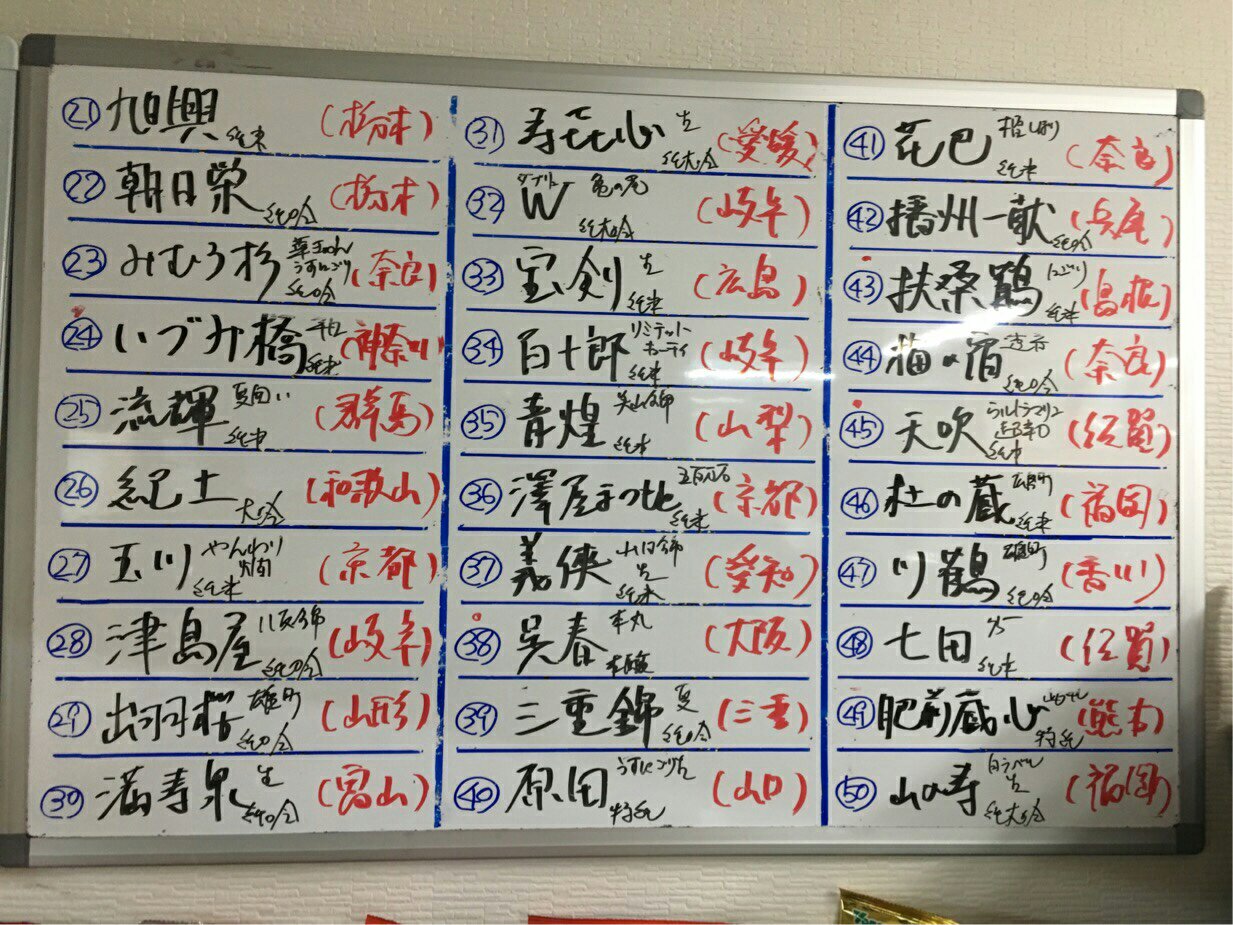 ㉑ 旭興 純米 (栃木)
㉒ 朝日榮 純吟 (栃木)
㉓ みむろ杉 うすにごり 純吟 (奈良)
㉔ いづみ橋 純米 (神奈川)
㉕ 流輝 夏囲い 純米 (群馬)
㉖ 紀土 大吟 (和歌山)
㉗ 玉川 やんわり 純米 (京都)
㉘ 津島屋 八反錦 純吟 (岐阜)
㉙ 出羽桜 雄町 純吟 (山形)
㉚ 満寿泉 生 純吟 (富山)
㉛ 寿喜心 生 純大吟 (愛媛)
㉜ W ダブリュー 亀の尾 純大吟 (岐阜)
㉝ 宝剣 生 純米 (広島)
㉞ 百十郎 リミテット 純米 (岐阜)
㉟ 青煌 美山錦 純米 (山梨)
㊱ 澤屋まつもと 五百万石 純米 (京都)
㊲ 義侠 山田錦 生 純米 (愛知)
㊳ 呉春 本丸 本醸 (大阪)
㊴ 三重錦 夏 純吟 (三重)
㊵ 原田 うすにごり生 特純 (山口)
㊶ 花巴 純米 (奈良)
㊷ 播州一献 純吟 (兵庫)
㊸ 扶桑鶴 にごり 純米 (島根)
㊹ 梅の宿 純吟 (奈良)
㊺ 天吹 超辛口 純米 (佐賀)
㊻ 杜の蔵 雄町 純米 (福岡)
㊼ 川鶴 雄町 純吟 (香川)
㊽ 七田 純米 (佐賀)
㊾ 肥前蔵心 特純 (熊本)
㊿ 山の寿 白ラベル 生 純大吟 (福岡)